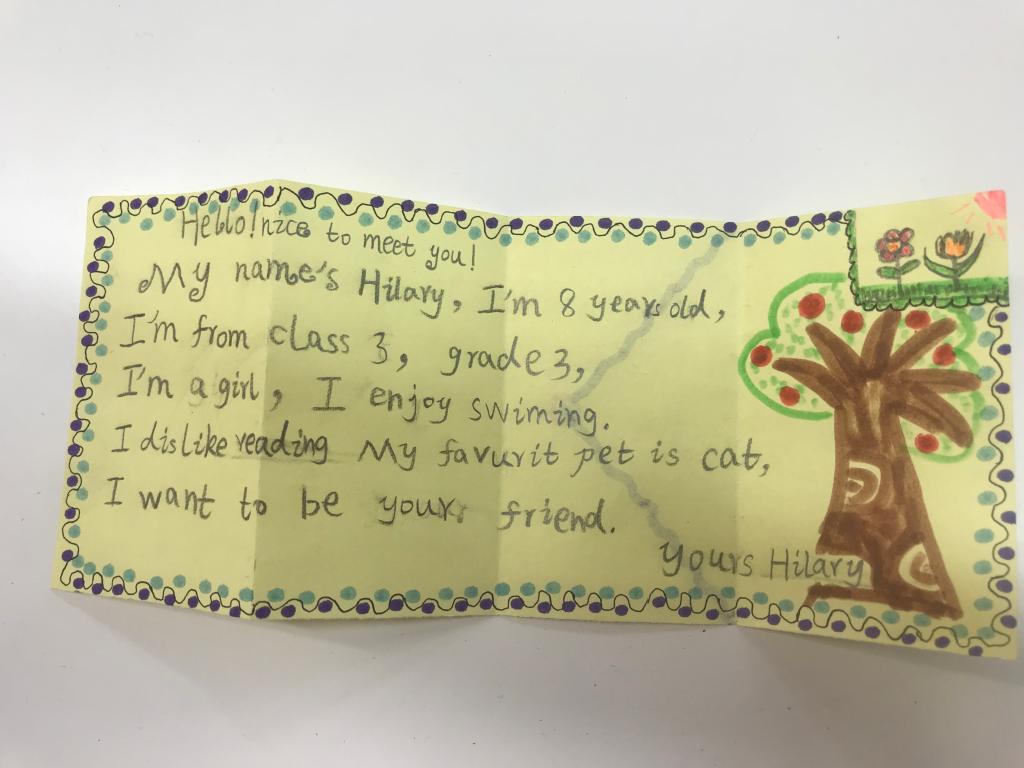 Hello! nice to meet you!
My name's Hilary, I'm 8 years old,
I'm from class 3, grade 3,
I'm a girl, I enjoy swiming.
I dislike reading My favurit pet is cat,
I want to be your friend.
yours Hilary